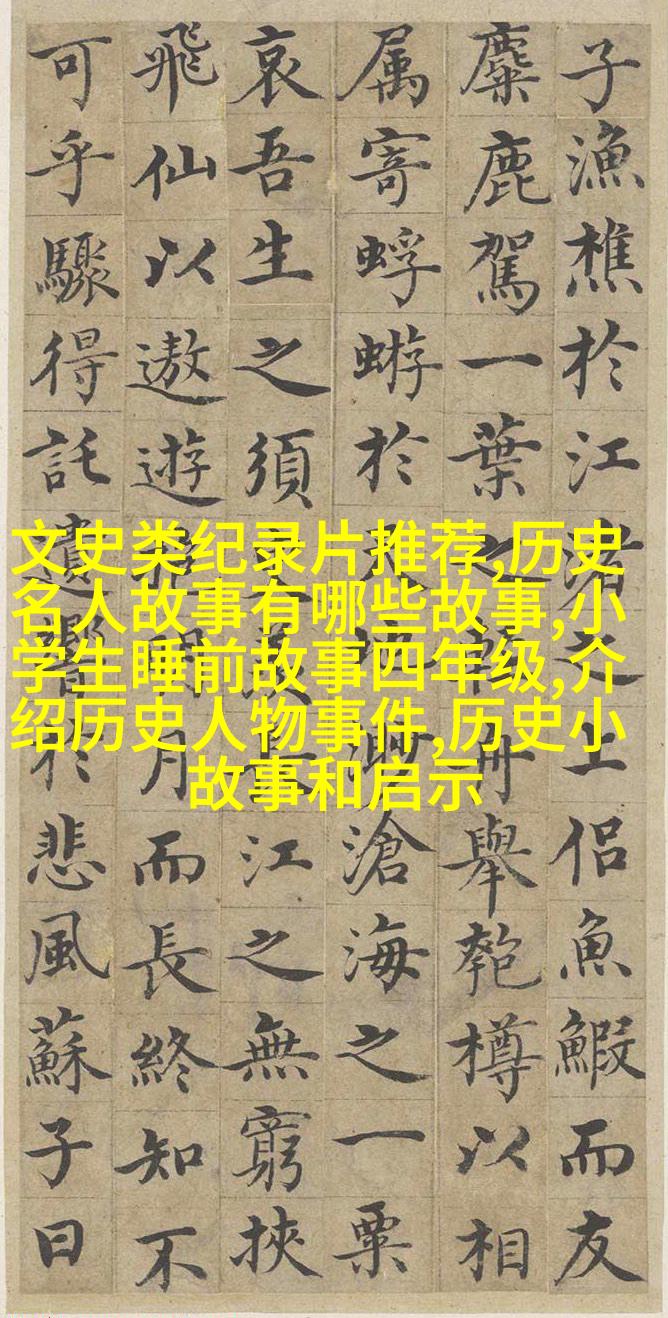 子漁樵於江渚之上侶魚鰕而友
麋鹿駕一葉之舟舉匏樽以相
属寄蜉蝣於渺滄海之一粟
哀吾生之須羨長江之無窮挾
飛仙以遨遊明月而長終知不
可乎驟得託遺響於悲風蘇子曰
文史类纪录片推荐,历史
名人故事有哪些故事,小
学生睡前故事四年级,介
绍历史人物事件,历史小
故事和启示